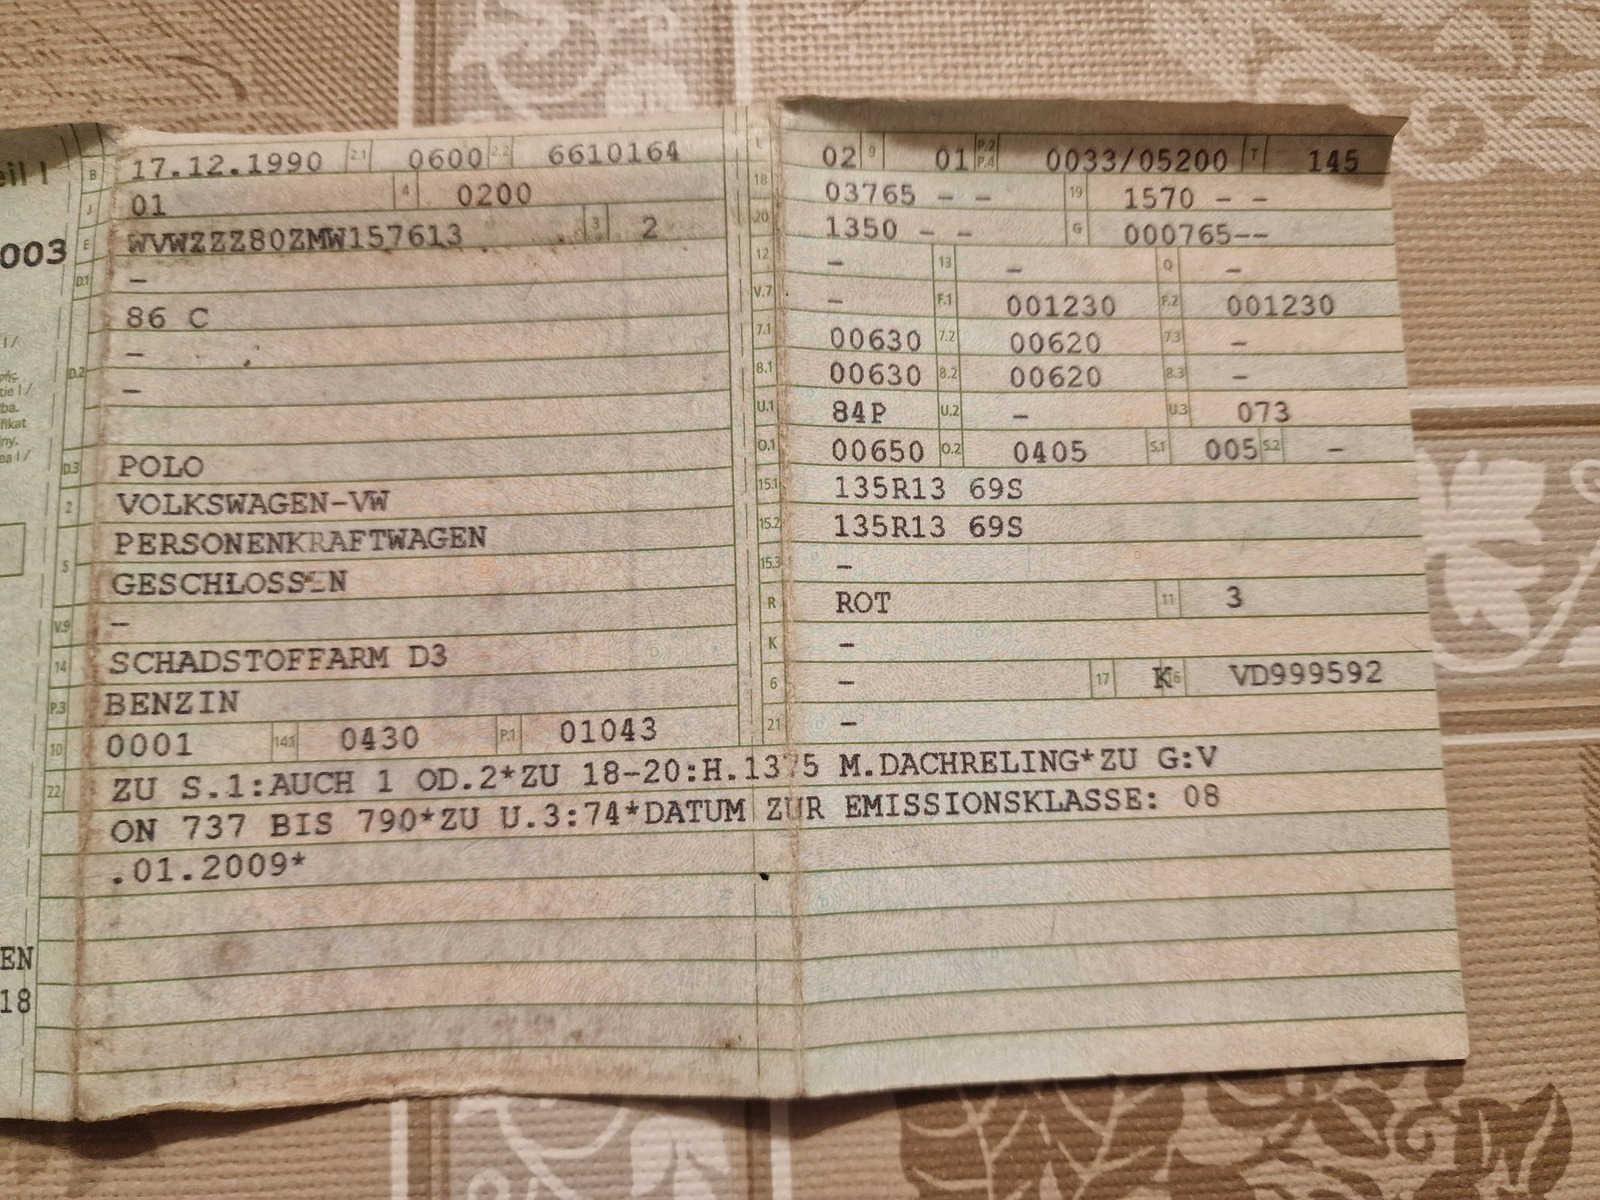 eil I
B 17.12.1990 2.1 0600 2.2 6610164
J 01 4 0200
003
E WVWZZZ80ZMW157613 3 2
D.1 –
86 C
–
D.2 –
D.3 POLO
2 VOLKSWAGEN-VW
5 PERSONENKRAFTWAGEN
GESCHLOSSEN
V.9 –
14 SCHADSTOFFARM D3
P.3 BENZIN
10 0001 14.1 0430 P.1 01043
L 02 9 01 P.2 P.4 0033/05200 T 145
18 03765 – – 19 1570 – –
20 1350 – – G 000765--
12 – 13 – Q –
V.7 – F.1 001230 F.2 001230
7.1 00630 7.2 00620 7.3 –
8.1 00630 8.2 00620 8.3 –
U.1 84P U.2 – U.3 073
O.1 00650 O.2 0405 S.1 005 S.2 –
15.1 135R13 69S
15.2 135R13 69S
15.3 –
R ROT 11 3
K –
6 – 17 K 16 VD999592
21 –
22 ZU S.1:AUCH 1 OD.2*ZU 18-20:H.1375 M.DACHRELING*ZU G:V
ON 737 BIS 790*ZU U.3:74*DATUM ZUR EMISSIONSKLASSE: 08
.01.2009*
EN
18